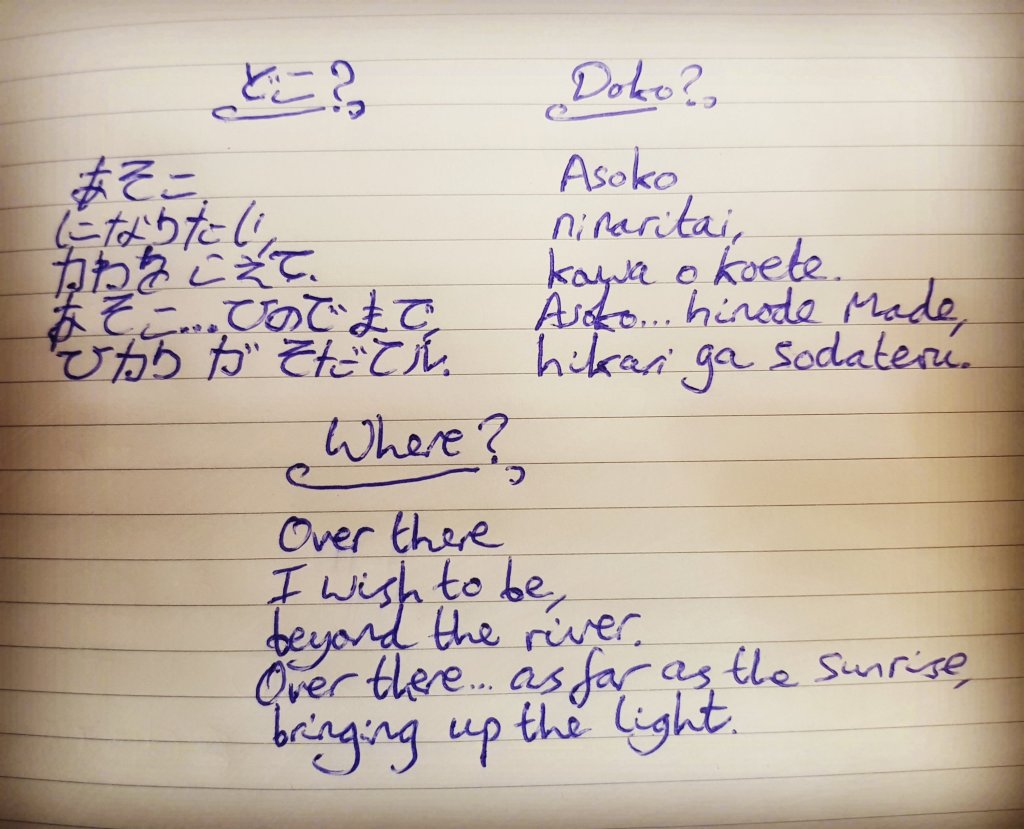 どこ?
あそこ
になりたい,
かわを こえて.
あそこ...ひのでまで,
ひかり が そだてル.
Doko?
Asoko
ninaritai,
kawa o koete.
Asoko... hinode made,
hikari ga sodateru.
Where?
Over there
I wish to be,
beyond the river.
Over there... as far as the sunrise,
bringing up the light.